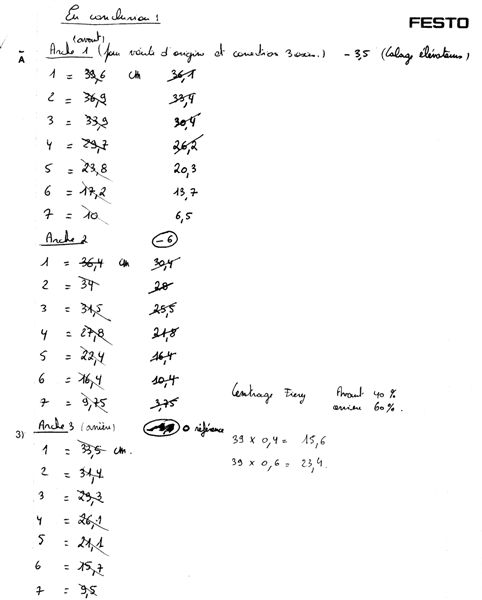 En conclusion :
FESTO
(avant)
A
Arche 1 (pour voile d'origine et correction 3 axes.) - 3,5 (Calage élévateurs)
1 = 39,6 cm 36,1
2 = 36,9 33,4
3 = 33,9 30,4
4 = 29,7 26,2
5 = 23,8 20,3
6 = 17,2 13,7
7 = 10 6,5
Arche 2 - 6
1 = 36,4 cm 30,4
2 = 34 28
3 = 31,5 25,5
4 = 27,8 21,8
5 = 22,4 16,4
6 = 16,4 10,4
7 = 9,75 3,75
Centrage Avant 40 %
arrière 60 %.
3) Arche 3 (arrière) 0 référence
39 x 0,4 = 15,6
1 = 33,5 cm.
39 x 0,6 = 23,4.
2 = 31,4
3 = 29,3
4 = 26,1
5 = 21,1
6 = 15,7
7 = 9,5